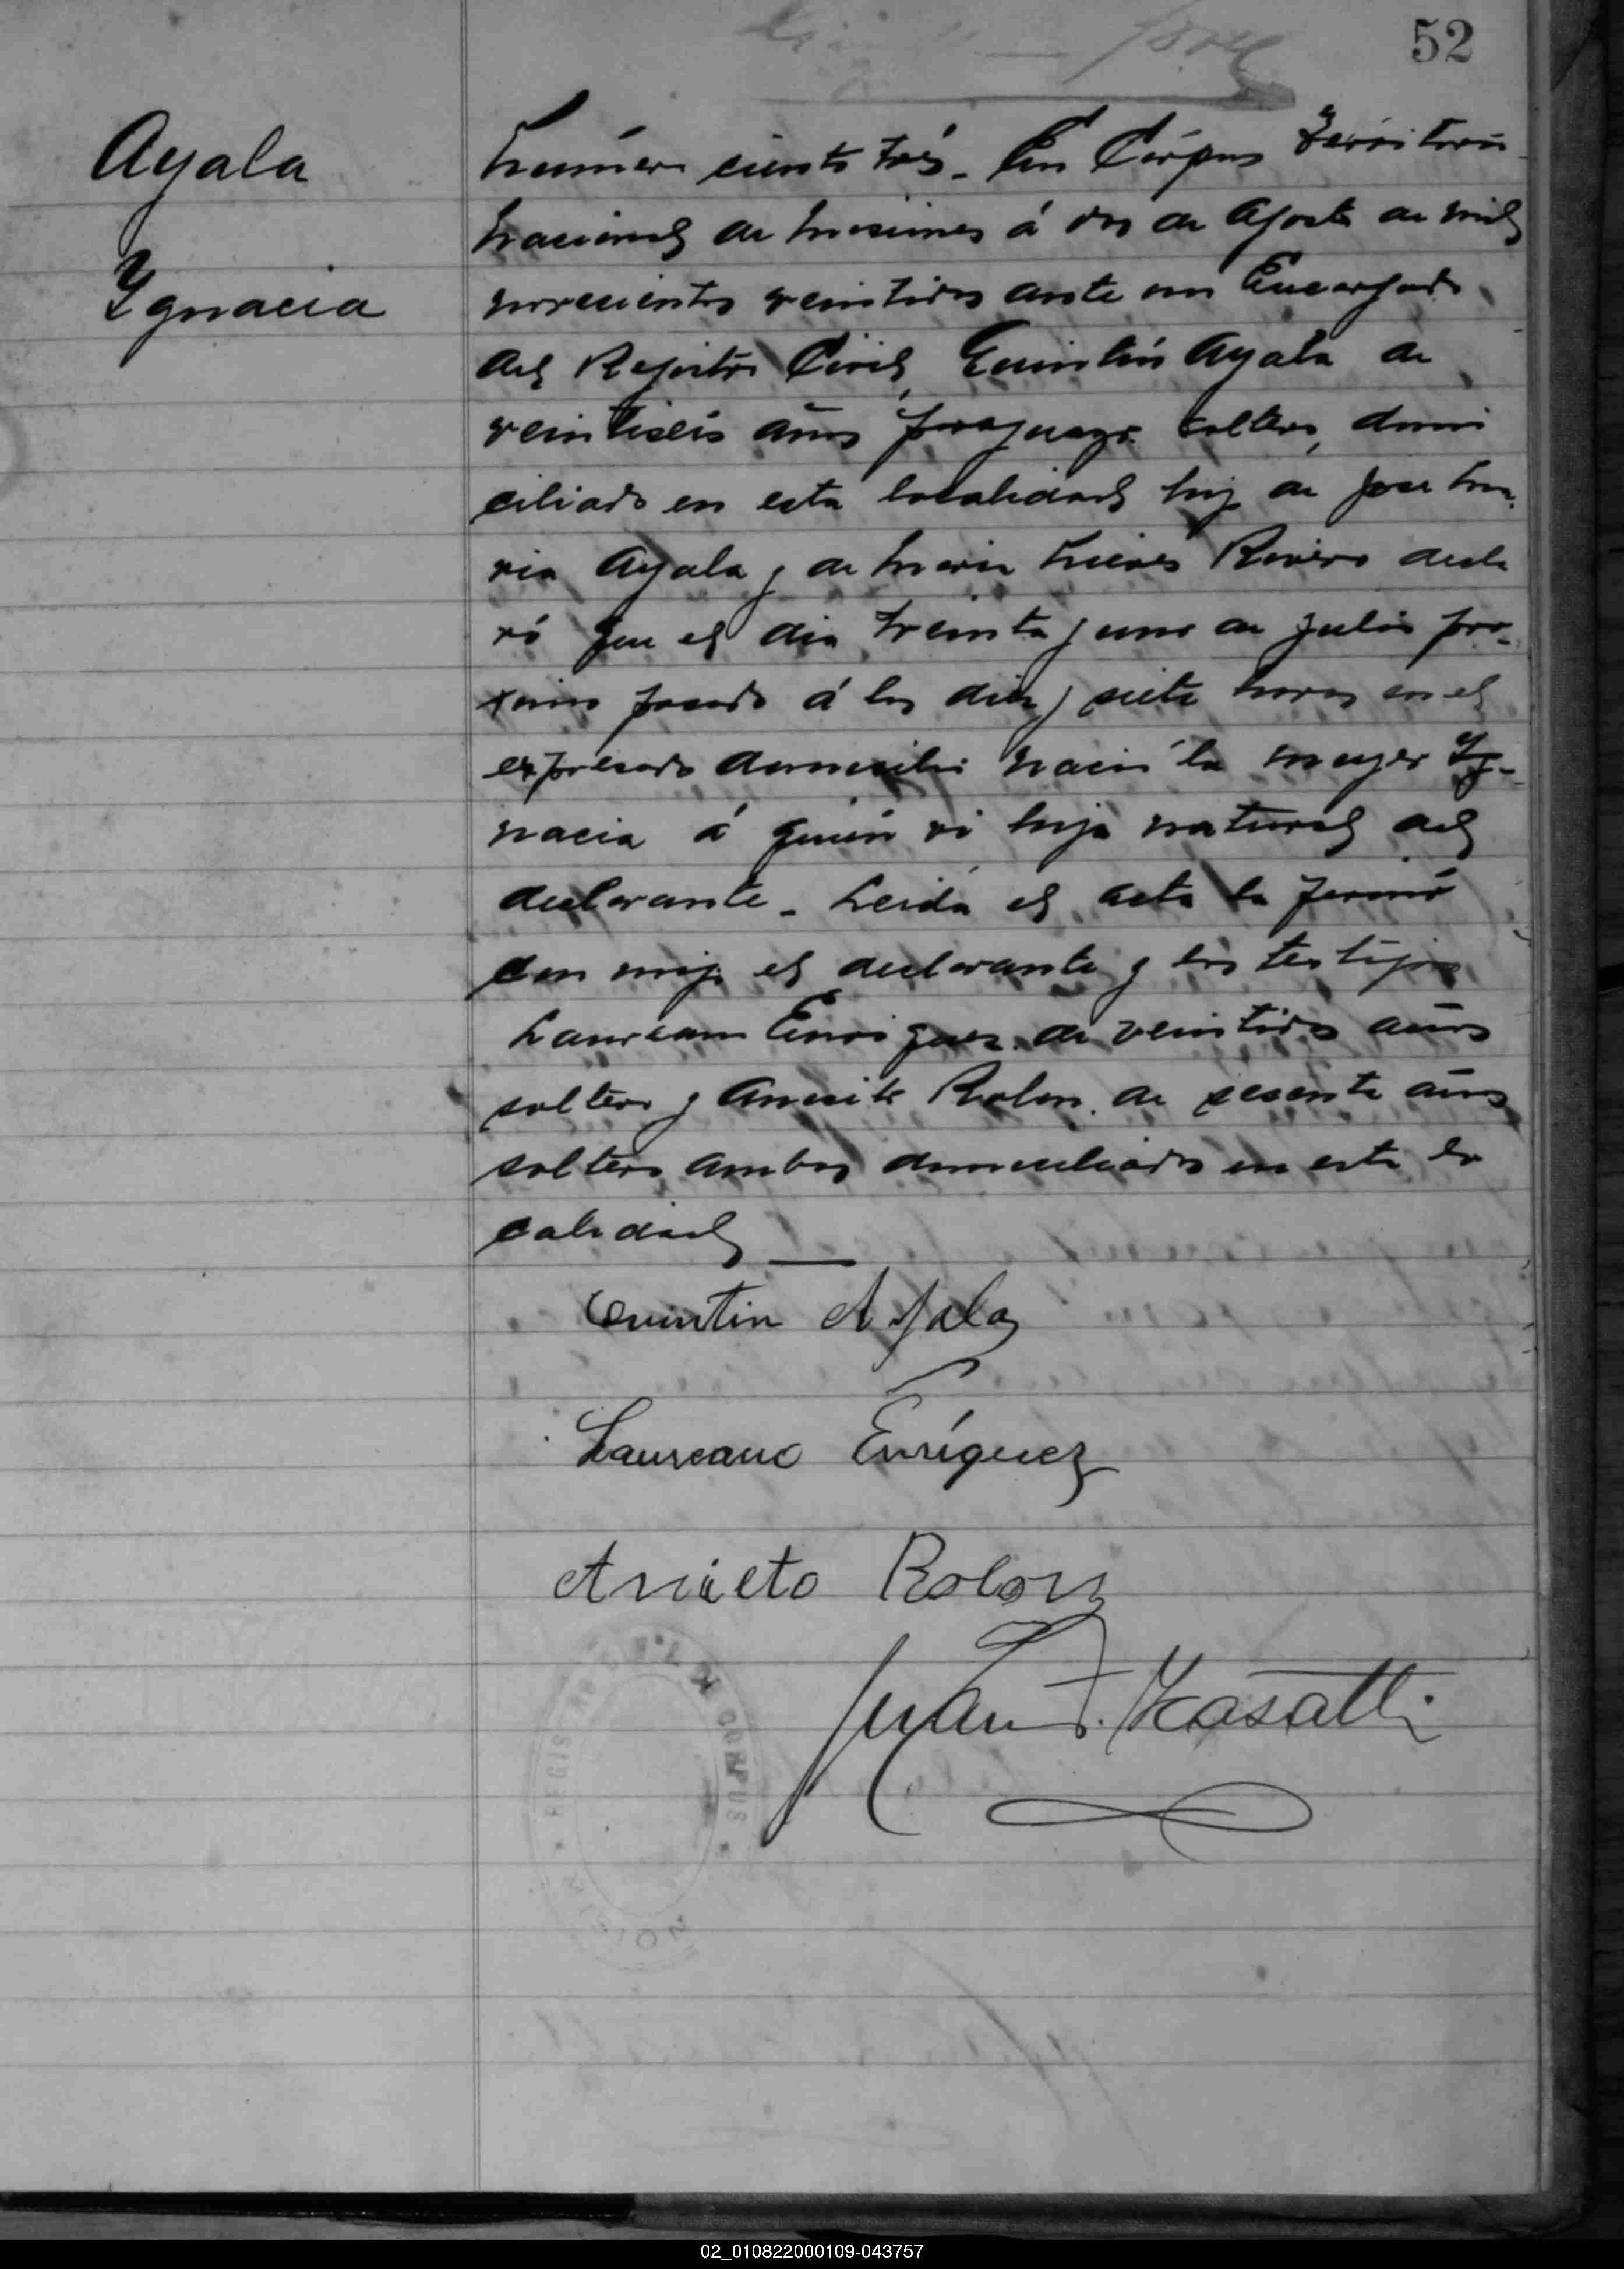 52
Ayala
Ygnacia
Número ciento tres. En Córpus Territorio
Nacional de Misiones á dos de Agosto de mil
novecientos veintidos ante mi Encargado
del Registro Civil, Quintín Ayala de
veintiseis años paraguayo soltero, domi
ciliado en esta localidad hijo de José Ma
ria Ayala y de Maria Nieves Rivero decla
ró que el dia treinta y uno de Julio pró-
ximo pasado á las diez y siete horas en el
expresado domicilio nació la mujer Yg-
nacia á quién ví hija natural del
declarante. Leida el acta la firmó
con migo el declarante y los testigos
Laureano Enriquez de veintidos años
soltero y Aniceto Rolon de sesenta años
soltero ambos domiciliados en esta lo
calidad
Quintin Ayala
Laureano Enríquez
Anicto Rolon
Juan Kasalli
REGISTRO CIVIL CORPUS
02_010822000109-043757